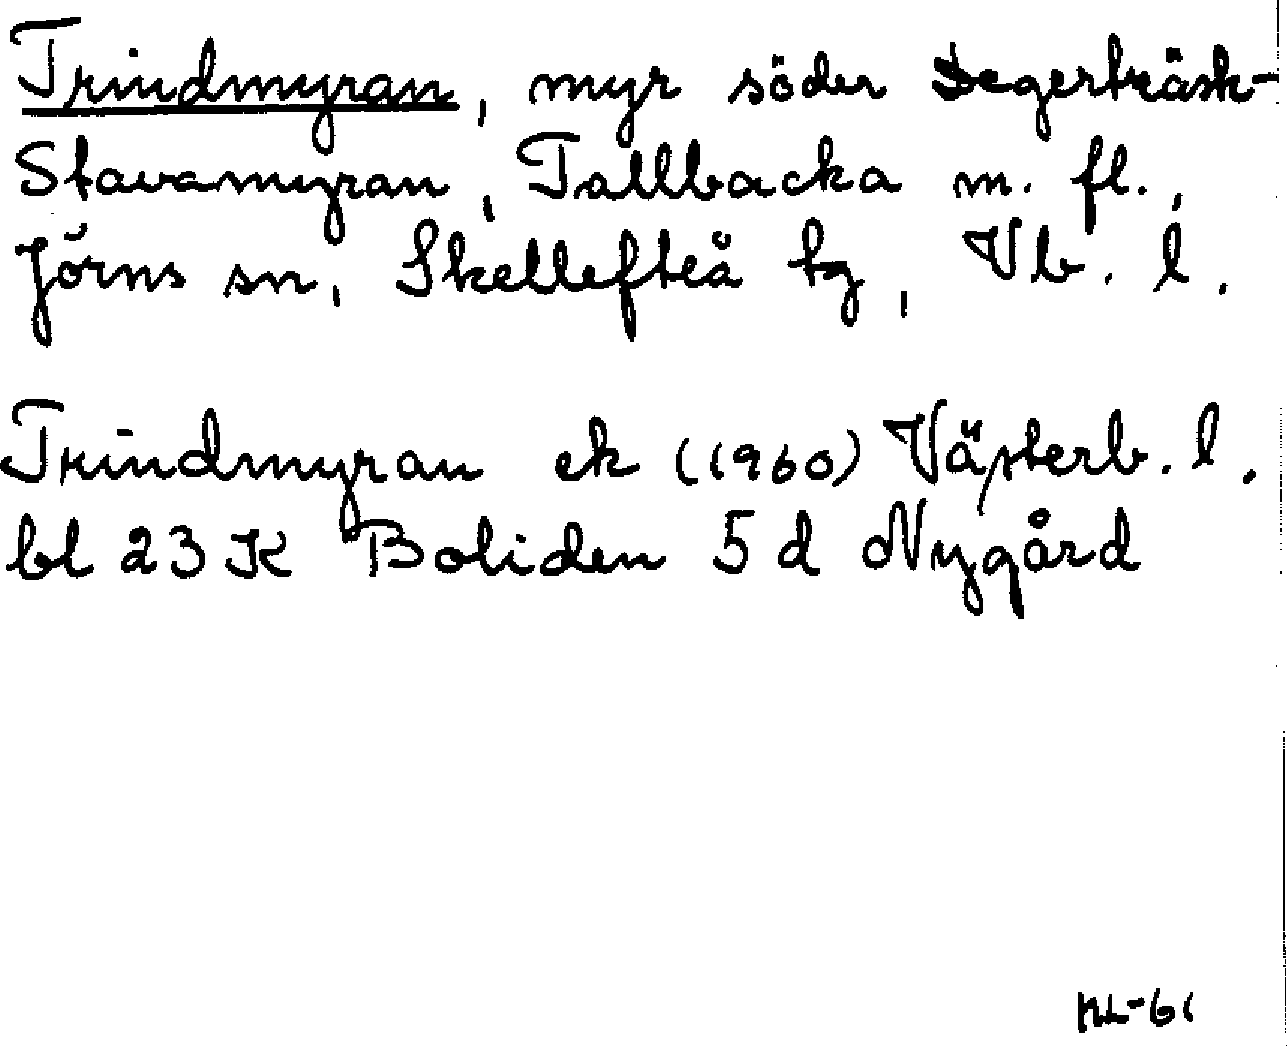 Trindmyran, myr söder Degerträsk-
Stavamyran, Tallbacka m. fl.,
Jörns sn, Skellefteå tg, Vb. l.
Trindmyran ek (1960) Västerb. l.
bl 23 K Boliden 5 d Nygård
KL-61